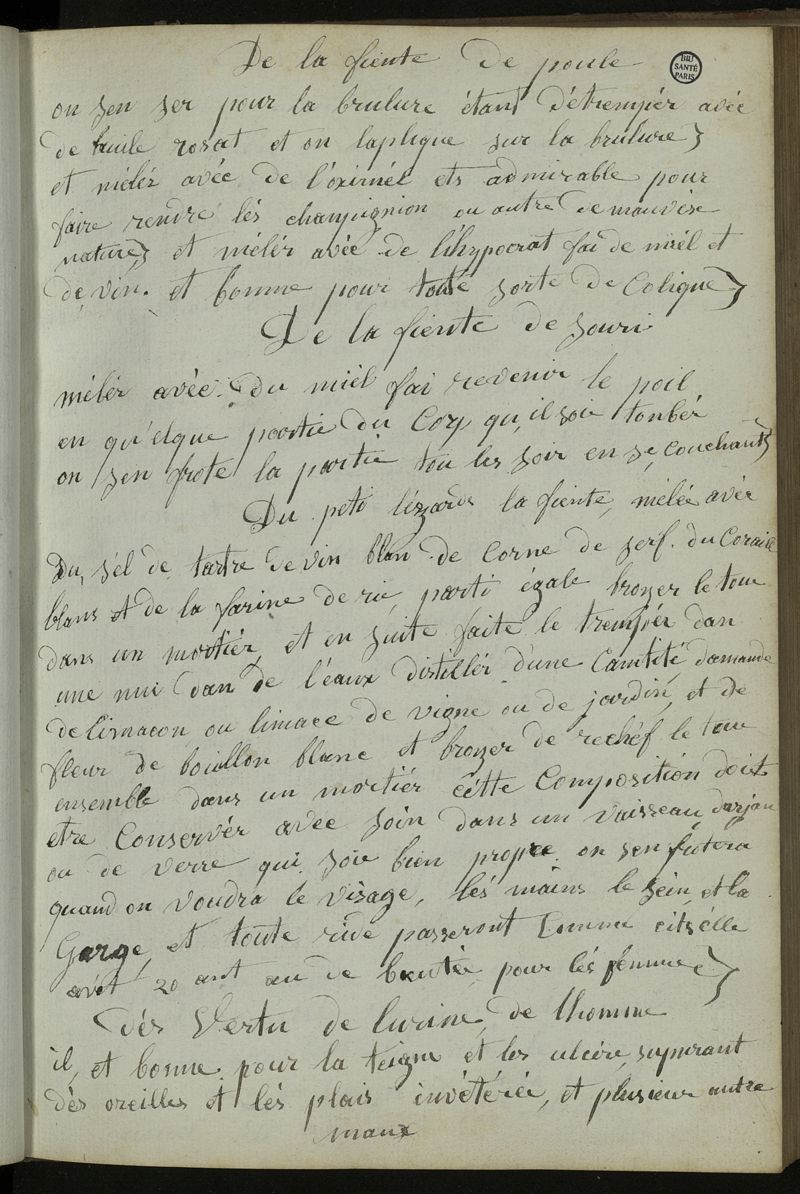 De la fiente de poule
BIU
SANTÉ
PARIS
on sen ser pour la brulure étant détrempér avéc
de huile rosat et on laplique sur la brulure
et mélér avéc de l'oximél ets admirable pour
faire rendre lés champignion ou autre de mauvise
nature et mélér avéc de lihypocrat fai de miél et
de vin. et bonne pour toute sorte de Colique
De la fiente de souri
mélér avéc du miél fai revenir le poil
en qu'elque partie du Corp qu'il soie tonbér
on sen frote la partie tou les soir en se couchant
Du peti lézzards la fiente mélée avéc
Du sél de tartre de vin blan de Corne de serf. du Coraill
blans et de la farine de ri, parti égale broyer le tout
dans un mortiér, et en suite faite le trempér dan
une nui dan de l'eaux distillér d'une Cantité, damande
de limacon ou limace de vigne ou de jardin, et de
fleur de boiollon blanc et broyer de rechéf le tout
ensemble dans un mortiér cétte Composition doit
etre Conservér avec soin dans un vaisseau darjan
ou de verre qui soie bien propre on sen frotera
quand on voudra le visage, lés mains le sein, et la
Garge, et toute ride passeront Comme citsélle
avét 20 ant au de bautée pour lés femme
dés Vertu de lurine de lhomme
il, et bonne pour la teigne et les ulcére, supurant
dés oreilles et lés plais invétérée, et plusieur autre
maux